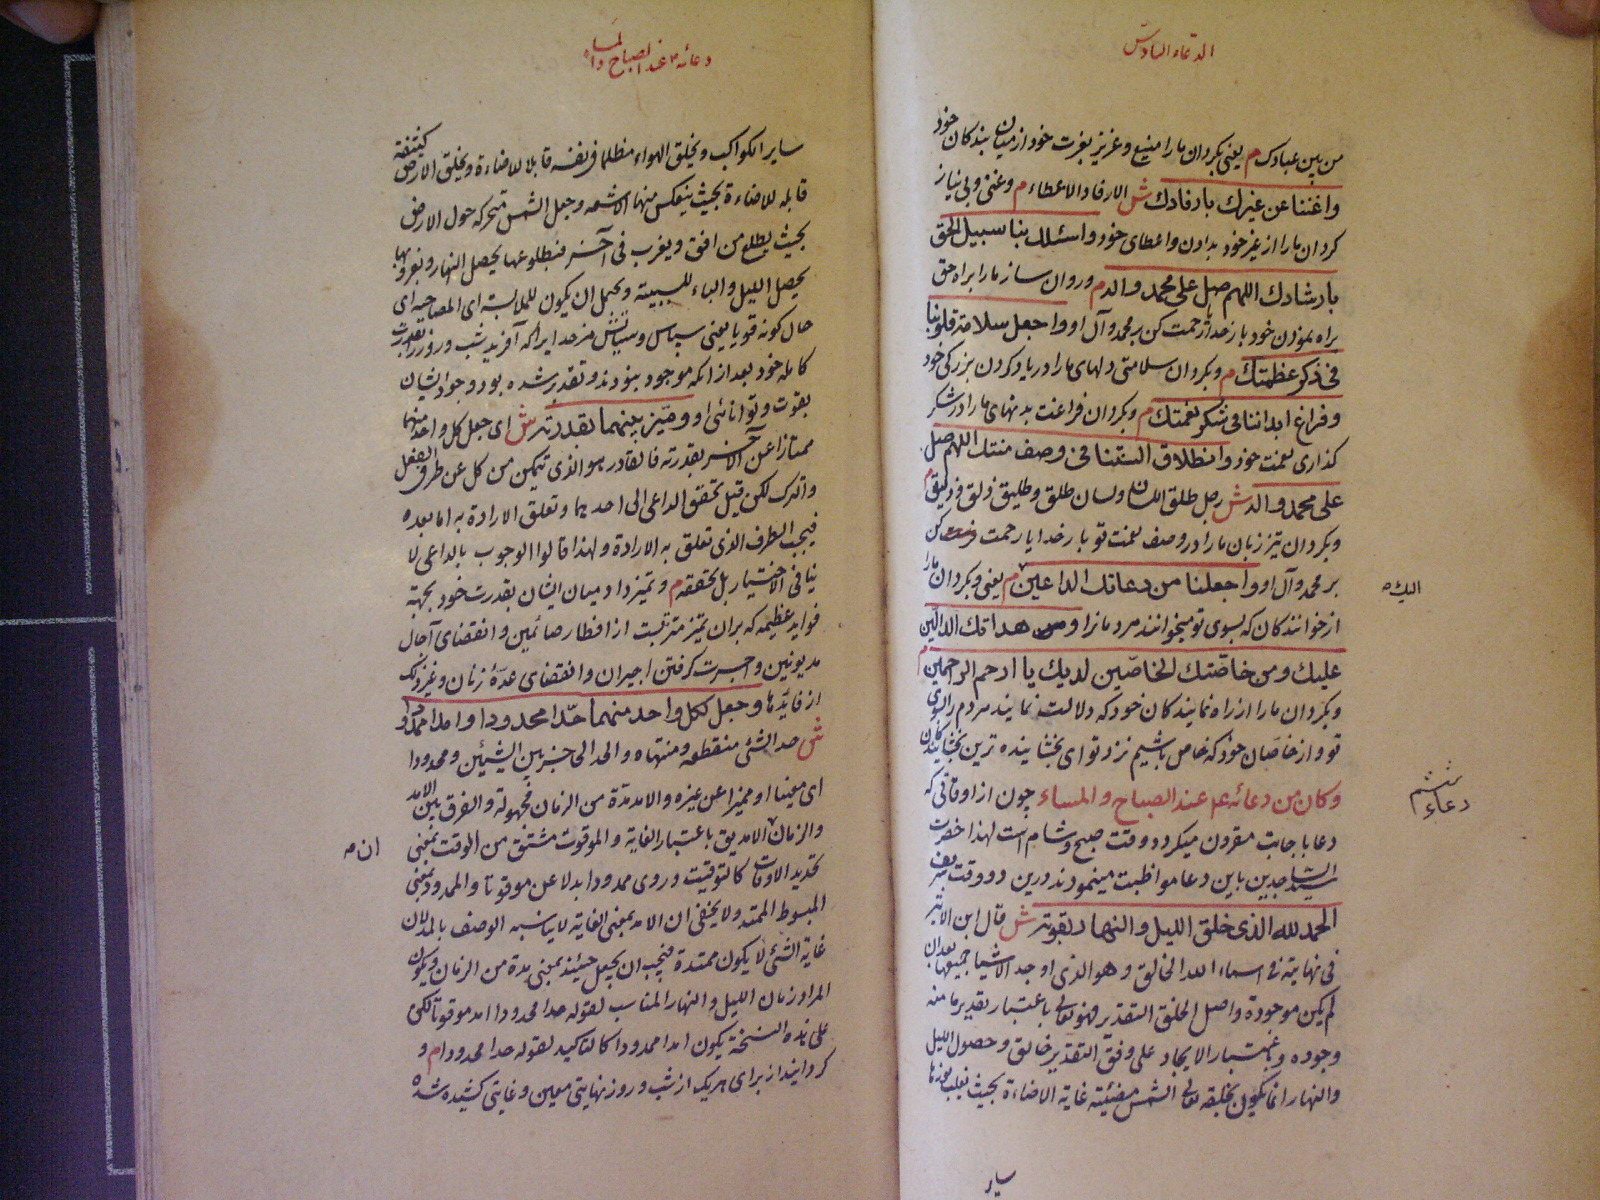 الدعاء السادس
من بين عبادك م يعنى بكردان مارا منيع وعزيز بعزت خود از ميان بندكان خود
واغننا عن غيرك بارفادك ش الارفاد الاعطاء م وغنى وبى نياز
كردان مارا از غير خود بدادن واعطاى خود واسئلك بنا سبيل الحق
بارشادك اللهم صل على محمد واله م وروان ساز مارا براه حق
براه نمودن خود بار خدا رحمت كن بر محمد وآل او واجعل سلامة قلوبنا
فى ذكر عظمتك م وبكردان سلامتى دلهاى مارا در ياد كردن بزركى خود
وفراغ ابداننا فى شكر نعمتك م وبكردان فراغت بدنهاى مارا در شكر
كذارى نعمت خود وانطلاق السنتنا فى وصف منتك اللهم صل
على محمد واله ش رجل طلق اللسان ولسان طلق وطليق ذلق وذليق م
وبكردان تيز زبان مارا در وصف نعمت تو بار خدايا رحمت فرست كن
بر محمد وآل او واجعلنا من دعاتك الداعين م يعنى وبكردان مارا
از خوانندكان كه بسوى تو ميخوانند مردمانرا ومن هداتك الدالين
اليك ه
عليك ومن خاصتك الخاصين لديك يا ارحم الراحمين م
وبكردان مارا از راه نمايندكان خود كه دلالت نمايند مردم را بسوى
تو واز خاصان خود كه خاص باشيم نزد تو اى بخشاينده ترين بخشايندكان
وكان من دعائه ع عند الصباح والمساء چون از اوقاتى كه
دعاء ششم
دعا باجابت مقرون ميكردد وقت صبح وشام است لهذا حضرت
سيد الساجدين باين دعا مواظبت مينمودند درين دو وقت شريف
الحمد لله الذى خلق الليل والنهار بقوته ش قال ابن الاثير
فى نهايته فى اسماء الله الخالق وهو الذى اوجد الاشيا جميعها بعد ان
لم يكن موجودة واصل الخلق التقدير فهو تعالى باعتبار تقدير ما منه
وجوده وباعتبار الايجاد على وفق التقدير خالق وحصول الليل
والنهار انما يكون بخلقه تعالى الشمس مضيئة غاية الاضاءة بحيث يغلب نورها
ساير
دعائه ع عند الصباح والمساء
ساير الكواكب وبخلق الهواء مظلما فى نفسه قابلا للاضاءة وبخلق الارض كثيفة
قابله للاضاءة بحيث ينعكس منها الاشعه وجعل الشمس متحركه حول الارض
بحيث يطلع من افق ويغرب فى آخر فبطلوعها يحصل النهار وبغروبها
يحصل الليل والباء للسببية ويحتمل ان يكون للملابسة اى المصاحبه اى
حال كونه قويا يعنى سپاس وستايش مر خدايرا كه آفريد شب وروز را بقدرت
كامله خود بعد از انكه موجود نبودند وتقدير شده بود وجود ايشان
بقوت وتوانائى او وميز بينهما بقدرته ش اى جعل كل واحد منهما
ممتازا عن الآخر بقدرته فالقادر هو الذى يتمكن من كل عن طرفى الفعل
والترك لكن قبل تحقق الداعى الى احدهما وتعلق الارادة به اما بعده
فيجب الطرف الذى تعلق به الارادة ولهذا قالوا الوجوب بالداعى لا
ينافى الاختيار بل يحققه م وتميز داد ميان ايشان بقدرت خود بجهته
فوايد عظيمه كه بر ان تميز مترتبست از افطار صائمين وانقضاى آجال
مديونين واجرت كرفتن اجيران وانقضاى عدۀ زنان وغير ذلك
از فايدها وجعل لكل واحد منهما حدا محدودا وامدا ممدودا
ش حد الشئ منقطعه ومنتهاه والحد الحاجز بين الشيئين ومحدودا
اى معينا او مميزا عن غيره والامد مدة من الزمان مجهولة والفرق بين الامد
والزمان ان الامد يق باعتبار الغاية والموقوت مشتق من الوقت بمعنى
ان م
تحديد الاوقات كالتوقيت وروى ممدودا بدلا عن موقوتا والممدود بمعنى
المبسوط الممتد ولا يخفى ان الامد بمعنى الغاية لا يناسبه الوصف بالمد لان
غاية الشئ لا يكون ممتدة فيجب ان يجعل حينئذ بمعنى مدة من الزمان ويكون
المراد زمان الليل والنهار المناسب لقوله حدا محدودا امد موقوتا لكن
على هذه النسخة يكون امدا ممدودا كالتاكيد لقوله حدا محدودا م و
كردانيد از براى هر يك از شب وروز نهايتى معين وغايتى كشيده شده